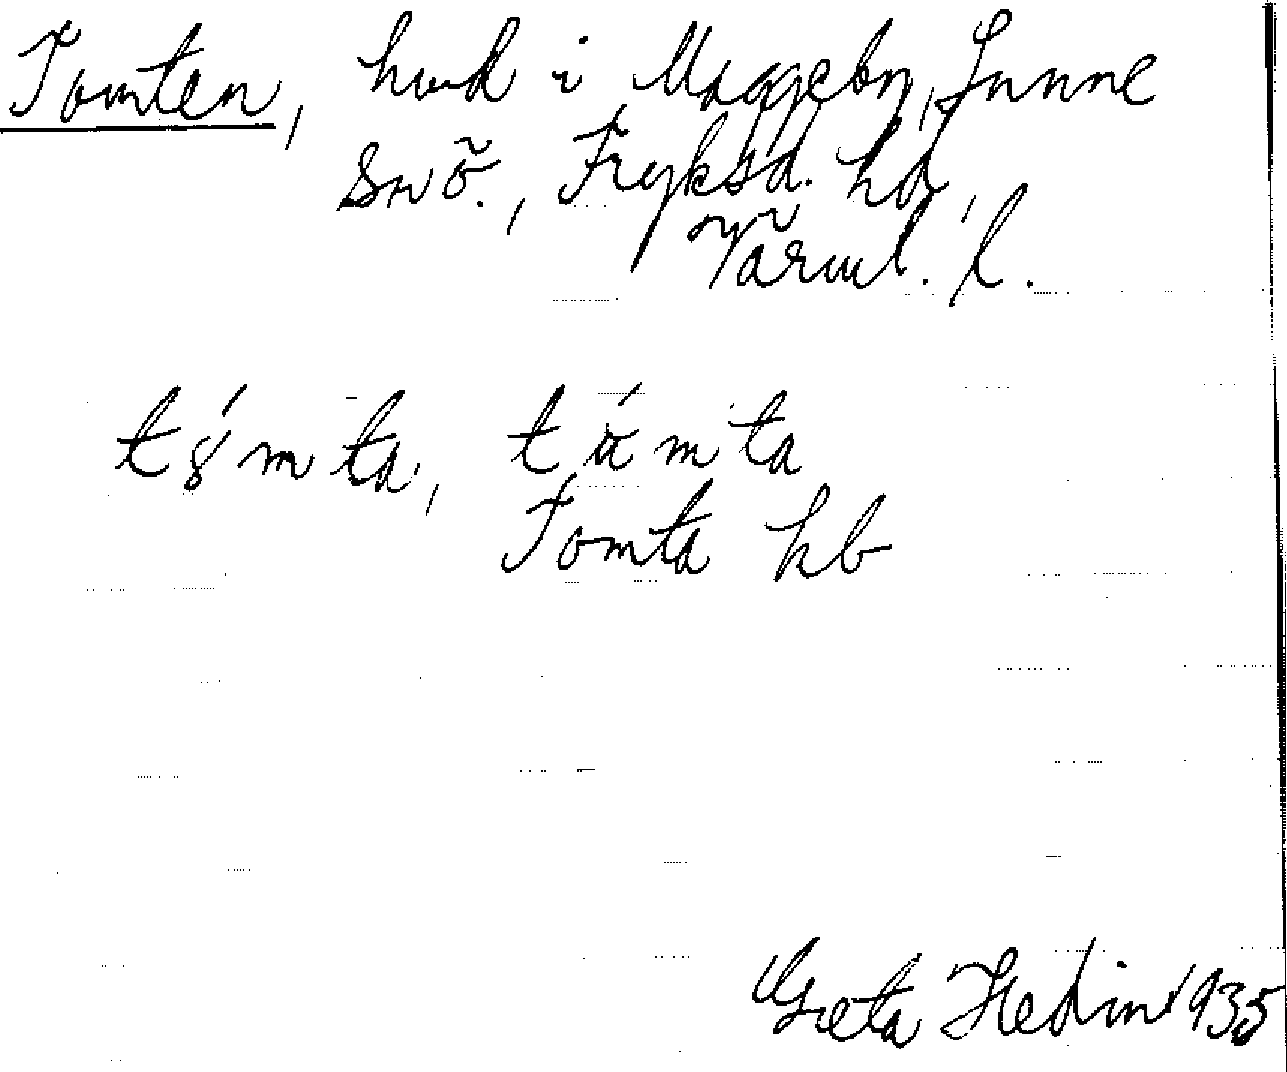 Tomten, hmd i Maggebyn, Sunne
sn õ., Fryksd. hd,
Värml. l.
tǿmta, tåmta
Tomta hb
Greta Hedin 1935